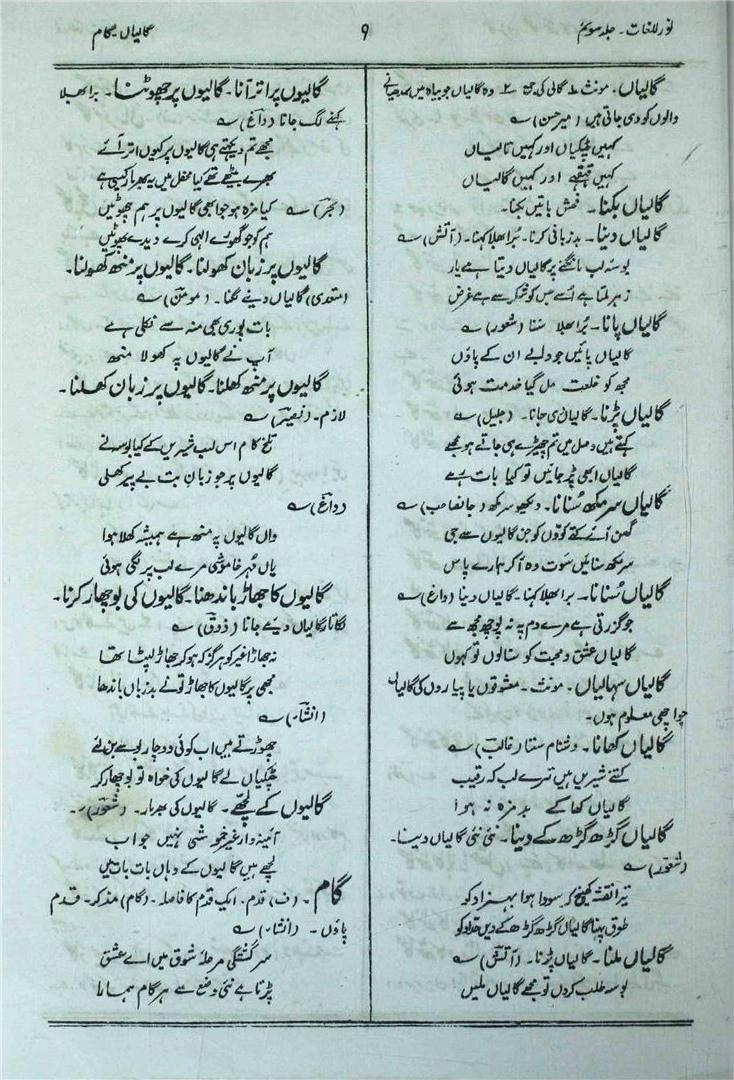 نور اللغات۔ جلد سوئم
۹
گالیاں گام
گالیاں۔ مونث ۱ گالی کی جمع ۲ وہ گالیاں جو بیاہ میں
والوں کو دی جاتی ہیں (میر حسن) ؎
کہیں چٹکیاں اور کہیں تالیاں
کہیں قہقہے اور کہیں گالیاں
گالیاں بکنا۔ فحش باتیں بکنا۔
گالیاں دینا۔ بدزبانی کرنا۔ بُرا بھلا کہنا۔ (آتش) ؎
بوسہ لب مانگنے پر گالیاں دیتا ہے یار
زہر ملتا ہے اُسے جس کو شکر سے ہے غرض
گالیاں پانا۔ بُرا بھلا سننا (شعور) ؎
گالیاں پائیں جو دابے ان کے پاؤں
مجھ کو خلعت مل گیا خدمت ہوئی
گالیاں پڑنا۔ گالیاں دی جانا۔ (جلیل) ؎
کہتے ہیں وصل میں تم چھیڑے ہی جاتے ہو مجھے
گالیاں ابھی پڑ جائیں تو کیا بات رہے
گالیاں سر مکھ سُنانا۔ دیکھو سر مکھ (جانصاحب) ؎
گھن آئے کتے کوّوں کو جن گالیوں سے جی
سر مکھ سنائیں سَوت وہ آکر ہمارے پاس
گالیاں سُنانا۔ برا بھلا کہنا۔ گالیاں دینا (داغ) ؎
جو گزرتی ہے مرے دم پہ نہ پوچھ مجھ سے
گالیاں عشق و محبت کو سنالوں تو کہوں
گالیاں سہالیاں۔ مونث۔ معشوقوں یا پیاروں کی گالیاں
جو اچھی معلوم ہوں۔
گالیاں کھانا۔ دشنام سننا (غالب) ؎
کتنے شیریں ہیں تیرے لب کہ رقیب
گالیاں کھا کے بدمزہ نہ ہوا
گالیاں گڑھ گڑھ کے دینا۔ نئی نئی گالیاں دینا۔
(شعور) ؎
تیرا نقشہ کھینچ کر سودا ہوا بہزاد کو
طوق پہنا گالیاں گڑھ گڑھ کے دیں حداد کو
گالیاں ملنا۔ گالیاں پڑنا۔ (آتش) ؎
بوسہ طلب کروں تو مجھے گالیاں ملیں
گالیوں پر اتر آنا۔ گالیوں پر چھوٹنا۔ برا بھلا
کہنے لگ جانا (داغ) ؎
مجھے تم دیکھتے ہی گالیوں پر کیوں اتر آئے
بھرے بیٹھے تھے کیا محفل میں یہ بھرمار کیسی ہے
(بحر) ؎ کیا مزہ ہو جو کبھی گالیوں پر ہم چھوٹیں
ہم کو جو گھورے الٰہی کرے دیدے پھوٹیں
گالیوں پر زبان کھولنا۔ گالیوں پر منھ کھولنا۔
(متعدی) گالیاں دینے لگنا۔ (مومن) ؎
بات پوری بھی منہ سے نکلی ہے
آپ نے گالیوں پہ کھولا منھ
گالیوں پر منھ کھلنا۔ گالیوں پر زبان کھلنا۔
لازم۔ (نصیر) ؎
تلخ کام اس لب شیریں کے کیا بوسے نے
گالیوں پر جو زبان بت بے پیر کھلی
(داغ) ؎
واں گالیوں پہ منھ ہے ہمیشہ کھلا ہوا
یاں مُہر خاموشی مرے لب پر لگی ہوئی
گالیوں کا جھاڑ باندھنا۔ گالیوں کی بوچھار کرنا۔
لگاتار گالیاں دیئے جانا (ذوق) ؎
نہ جھاڑا غیر کو ہرگز کہ ہو کر جھاڑ لپٹا تھا
مجھی پر گالیوں کا جھاڑ تو نے بدزباں باندھا
(انشاء) ؎
چھوڑتے ہیں اب کوئی دو چار بوسے بن لئے
چٹکیاں لے گالیوں کی خواہ تو بوچھار کر
گالیوں کے لچھے۔ گالیوں کی بھرمار۔ (شعور) ؎
آئینہ وار غیر خموشی نہیں جواب
لچھے ہیں گالیوں کے وہاں بات بات میں
گام۔ (ف) قدم۔ ایک قدم کا فاصلہ۔ (گام) مذکر۔ قدم
پاؤں۔ (انشاء) ؎
سر گشتگی مرحلہ شوق میں اے عشق
پڑتا ہے نئی وضع سے ہر گام ہمارا